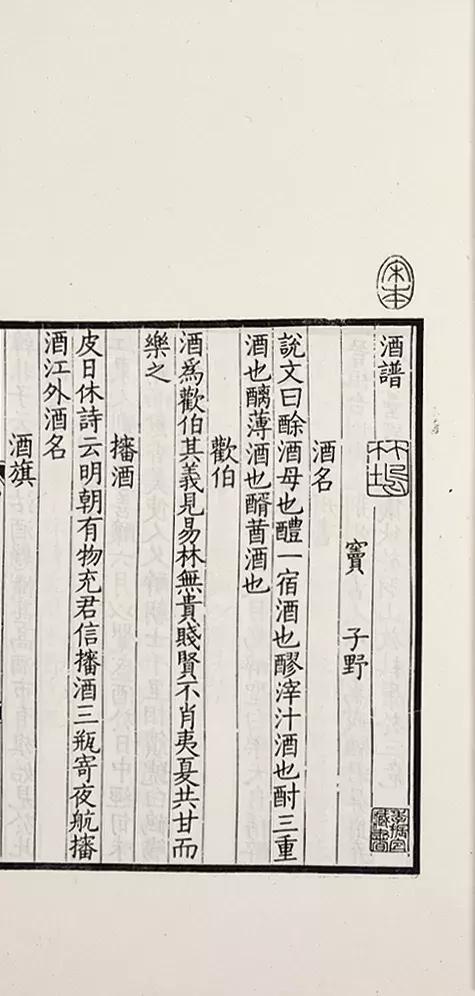 宋本
酒譜
竇 子野
酒名
說文曰酴酒母也醴一宿酒也醪滓汁酒也酎三重
酒也醨薄酒也醑莤酒也
歡伯
酒爲歡伯其義見易林無貴賤賢不肖夷夏共甘而
樂之
酒
皮日休詩云明朝有物充君信酒三瓶寄夜航
酒江外酒名
酒旗